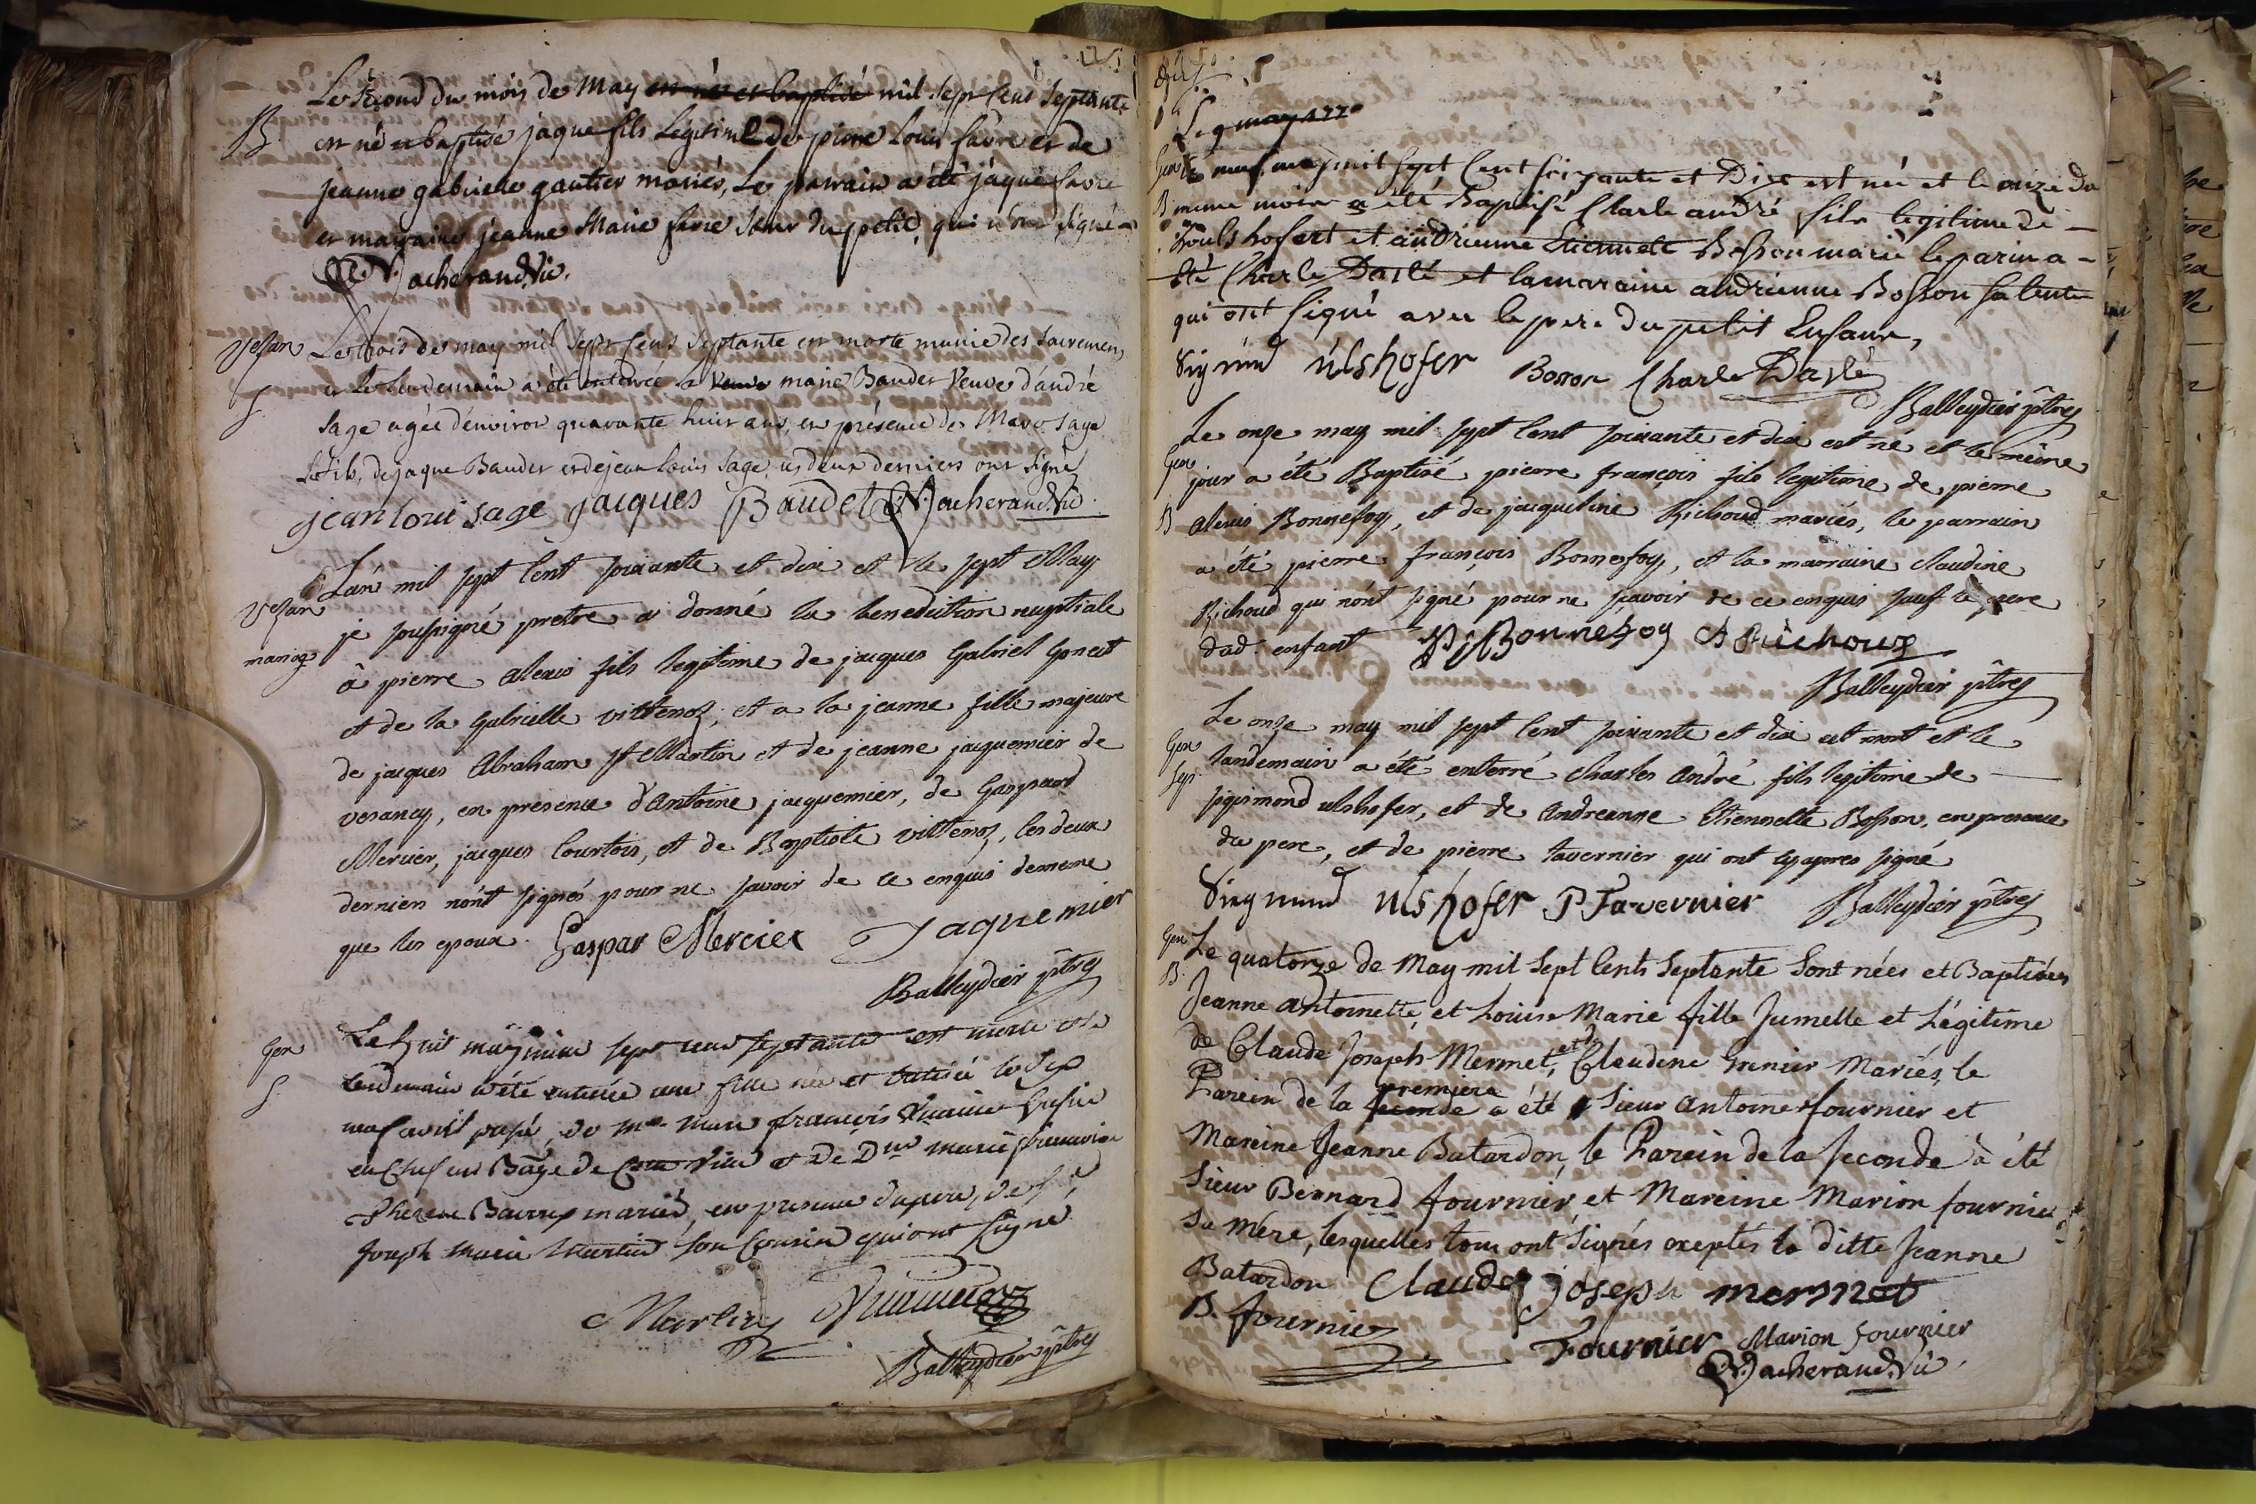 B. Le second du mois de May est né et baptisé mil sept cent septante
est né et baptisé jaque fils Légitime de pierre Louis favre et de
jeanne gabrielle gautier mariés, Le parrain a été jaque favre
et marraine jeanne Marie favre sœur du petit, qui n'ont signé
Vacherand Vic.
Vesan Le trois de may mil sept cent septante est morte munie des sacremens
S. et Le Lendemain a été enterrée la veuve marie Baudet Veuve d'andré
Sage agée d'environ quarante huit ans, en présence de Marc Sage
Le fils, de jaque Baudet et de jean Louis Sage, les deux derniers ont signé
jean loui sage jacques Baudet Vacherand Vic.
Vesan L'an mil sept cent soixante et dix et le sept May
mariage je soussigné pretre a donné la benediction nuptiale
à pierre alexis fils legitime de jacques Gabriel Goncet
et de la Gabrielle vittenoz, et a la jeanne fille majeure
de jacques Abraham St Martin et de jeanne jacquemier de
vesancy, en présence d'Antoine jacquemier, de Gaspard
Mercier, jacques Courtois, et de Baptiste vittenoz, les deux
derniers n'ont signés pour ne savoir de ce enquis de meme
que les epoux. Gaspar Mercier Jaquemier
Balleydier ptre
Gex Le huit may mille sept cent septante est morte et le
S. Lendemain a été enterrée une fille née et batisée le dix
en présence du pere, de Sr
Joseph marie Martin son Cousin qui ont signé
Martin
Balleydier ptre
Le 9 may 1770
Gex Le neuf may mil sept cent soixante et Dix est né et le onze du
B meme mois a été Baptisé Charle andré fils legitime de
houlshofert et andrienne Etiennete Bosson marié le parin a
été Charle Daslé et la maraine andrienne Bosson sa tente
qui ont signé avec le pere du petit Enfant,
Sigmund Ulshofer Bosson Charle Daslé
Balleydier ptre
Le onze may mil sept cent soixante et dix est né et le même
Gex jour a été Baptisé pierre françois fils legitime de pierre
B alexis Bonnefoy, et de jacqueline Richoud mariés, le parrain
a été pierre françois Bonnefoy, et la marraine claudine
Richoud qui n'ont signé pour ne sçavoir de ce enquis sauf le pere
dud. enfant Bonnefoy A Richoux
Balleydier ptre
Le onze may mil sept cent soixante et dix est mort et le
Gex landemain a été enterré charles André fils legitime de
Sep. sigismond ulshofer, et de Andreanne Etiennette Bosson, en presence
du pere, et de pierre tavernier qui ont cy apres signé
Sigmund Ulshofer P Tavernier Balleydier ptre
Gex Le quatorze de May mil Sept Cents Septante Sont nées et Baptisées
B. Jeanne Antoinette, et Louise Marie fille Jumelle et Légitime
de Claude Joseph Mermet, et de Claudine Grenier Mariés, le
Parein de la seconde premiere a été Sieur Antoine fournier et
Mareine Jeanne Batardon, le Parein de la Seconde à été
Sieur Bernard fournier, et Mareine Marion fournier
Sa Mére, lesquelles tous ont Signés exeptés la ditte Jeanne
Batardon Claude joseph mermet
B. fournier Fournier Marion fournier
Vacherand Vic.